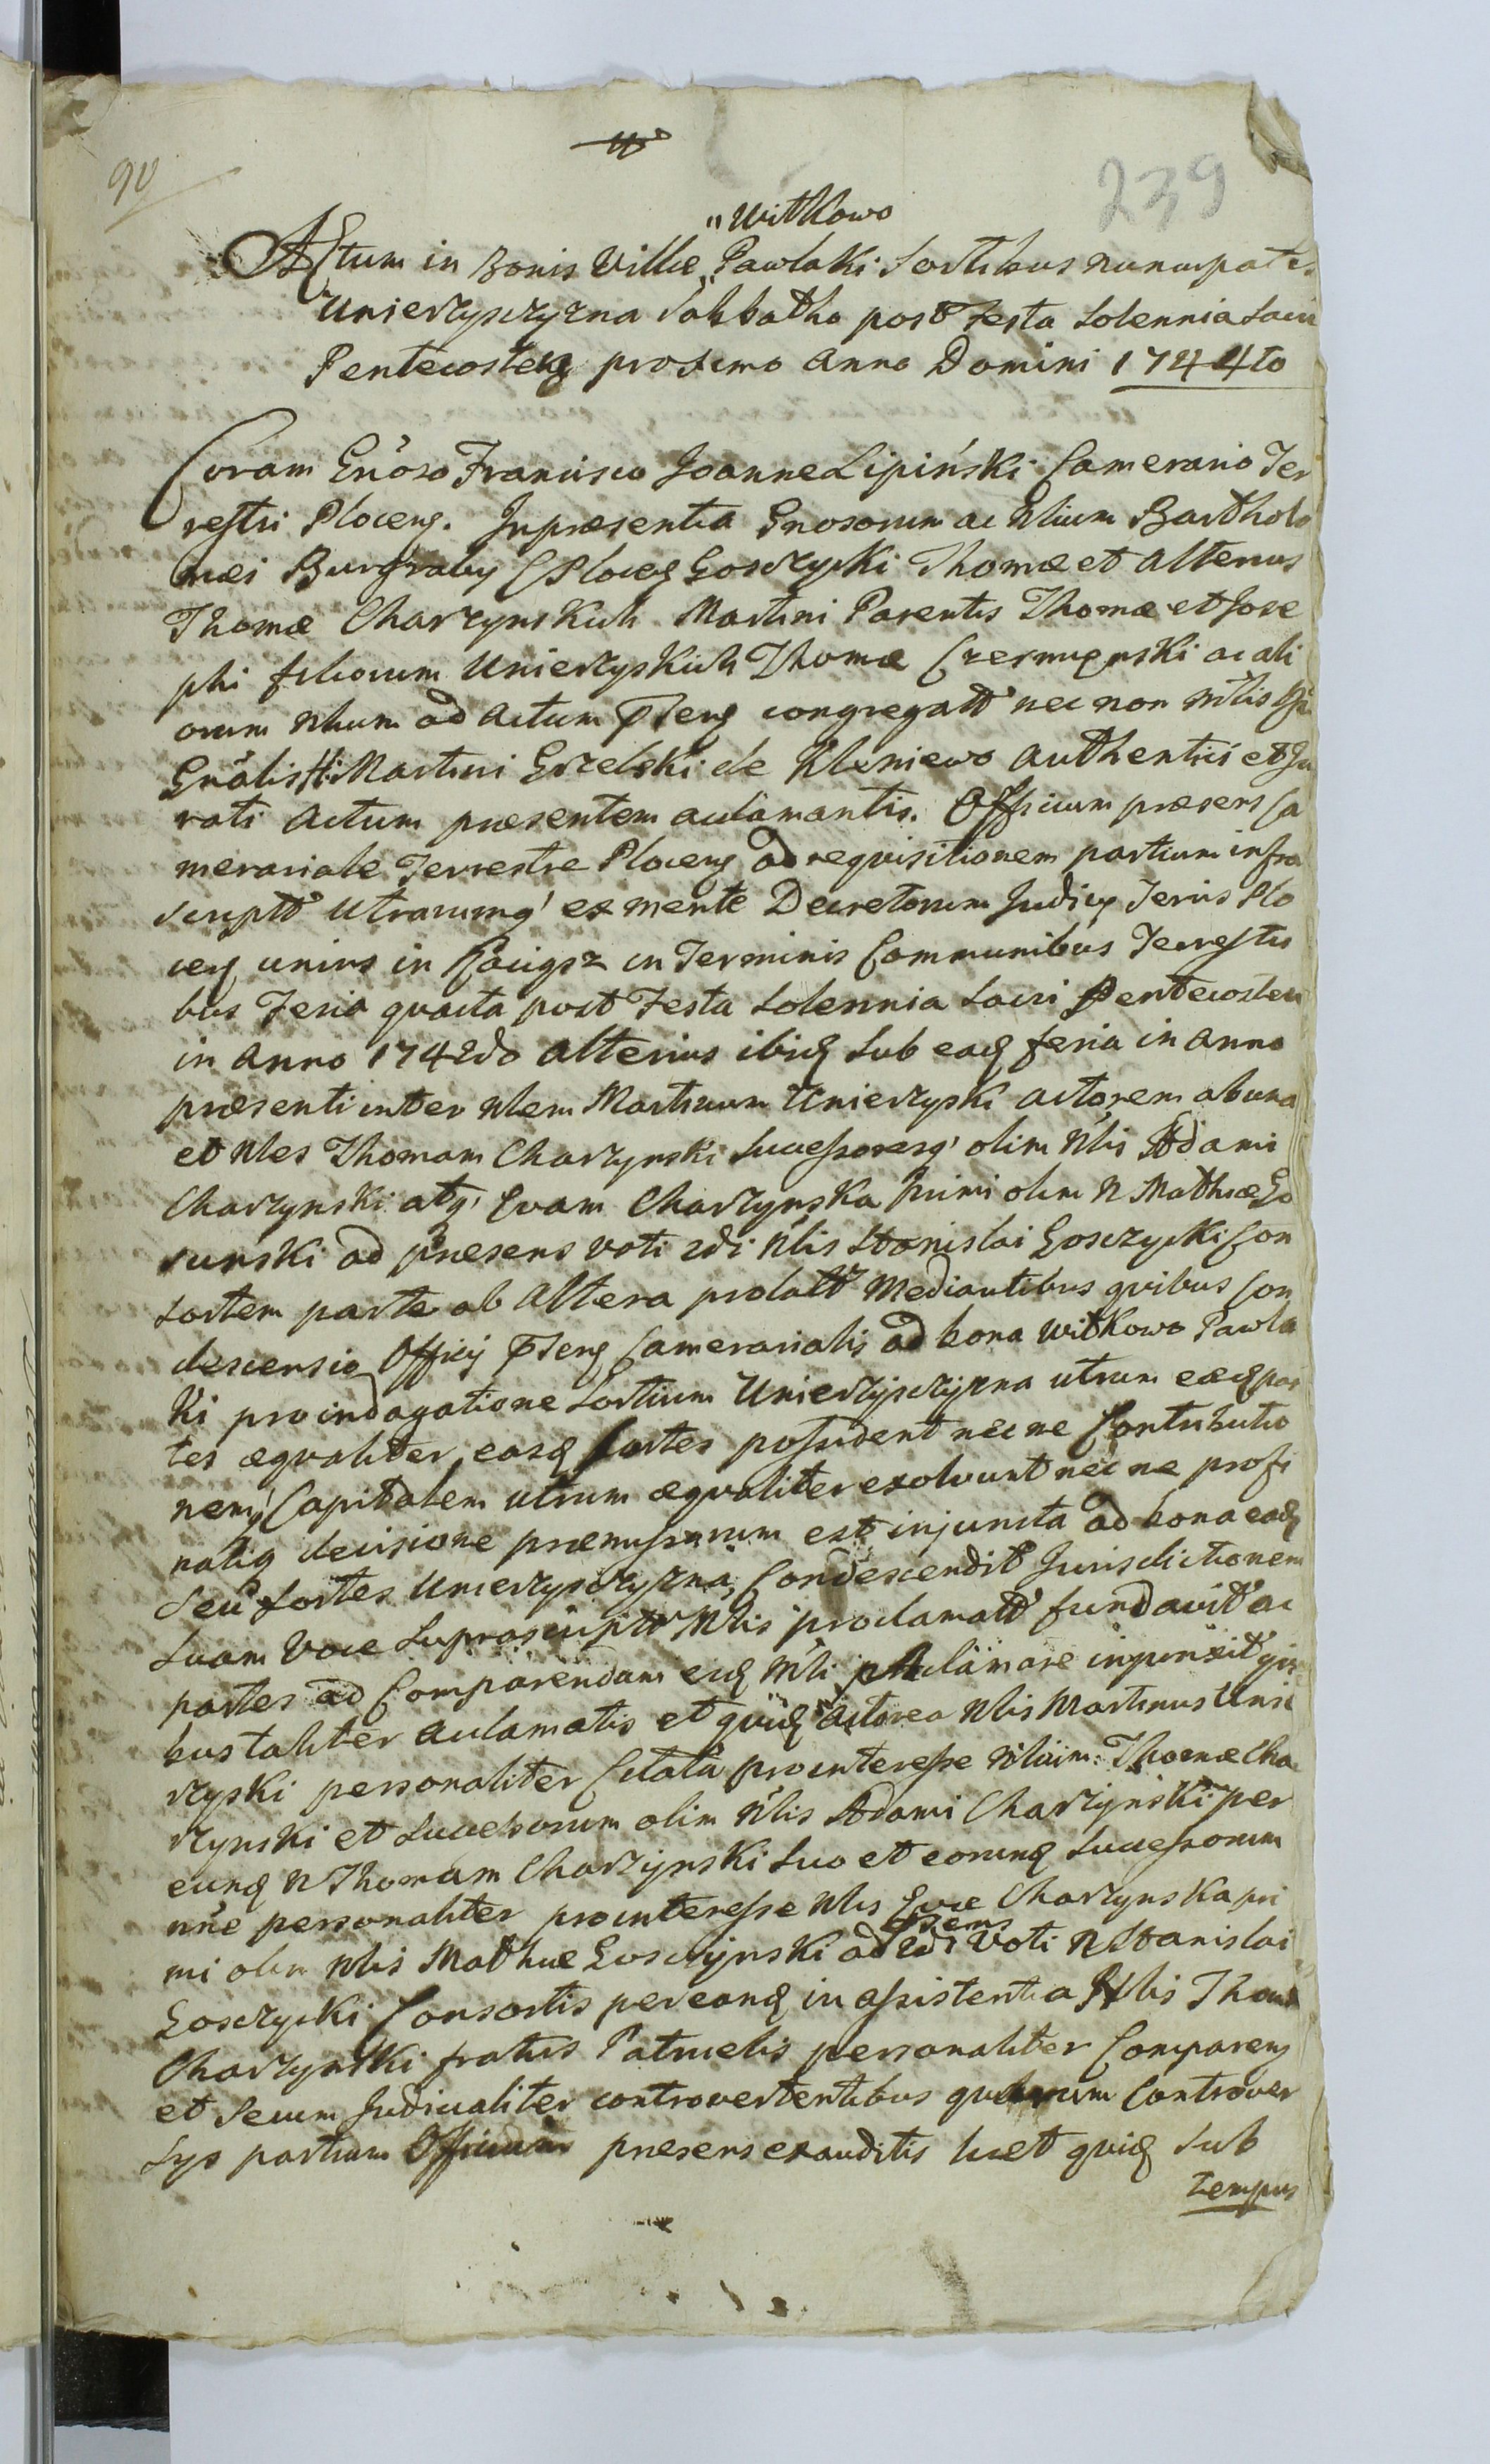 90
239
"Witkowo
Actum in Bonis Villæ "Pawlaki Sortibus nuncupatis
Unierzyszczyzna Sabbatho post Festa Solennia Sacri
Pentecosteng proximo Anno Domini 1744to
Coram Gnoso Francisco Joanne Lipiński Camerario Ter
restri Ploceng. Inpræsentia Gnosorum ac Nlium Bartholo
mæi Burgraby C Ploceg Gosczycki Thomæ et alterius
Thomæ Charzynskich Martini Parentis Thomæ et Jose
phi filiorum Unierzyskich Thomæ Czermynski ac ali
orum Nlium ad Actum Pseng congregatt nec non Mlis
Gnalis H: Martini Gozelski de Kleniewo Authentici et Ju
rati Actum præsentem aclamantis. Officium præsens Ca
merariale Terrestre Ploceng ad requisitionem partium infra
scriptt utrarumq' ex mente Decretorum Judicy Terris Plo
ceg unius in Raciqsz in Terminis Communibus Terrestri
bus Feria quarta post Festa Solennia Sacri Pentecosten
in Anno 1742do Alterius ibidg sub eadg feria in Anno
præsenti inter Nlem Martinum Unierzyski actorem ab una
et Nles Thomam Charzynski Successoresq' olim Nlis Adami
Charzynski atq' Evam Charzynska Primi olim N Mathiæ Go
sunski ad præsens voti 2di Nlis Stanislai Gosczycki Con
sortem parte ab Altera prolatt Mediantibus quibus Con
descensio Officij Pseng Camerarialis ad bona Witkowo Pawla
ki pro indagatione Sortium Unierzyszczyzna utrum eædg par
tes æqualiter easdg Sortes possident nec ne Contributio
nemq' Capitalem utrum æqualiter exolvunt nec ne profi
naliq decisione præmissorum est injuncta ad bona eadg
Seu Sortes Unierzyszczyzna, Condescendit Jurisdictionem
Suam Voce Suprascriptt Mlis proclamatt fundavit ac
partes ad Comparendum eidg Mli Aclamare injunxit qui
bus taliter aclamatis et quidg Actorea Nlis Martinus Unie
rzyski personaliter Citata pro interesse Nlium Thomæ Cha
rzynski et Successorum olim Nlis Adami Charzynski per
eundg N Thomam Charzynski suo et eorundg Successorum
nne personaliter pro interesse Nlis Evæ Charzynska pri
psens
mi olim Nlis Mathiæ Gosczynski ad 2di Voti N Stanislai
Gosczycki Consortis per eandg in assistentia Nlis Thomæ
Charzynski fratris Patruelis personaliter Compareng
et Secum Judicialiter controvertentibus quarum Controver
sys partium Officium præsens exauditis licet quidg Sub
tempus